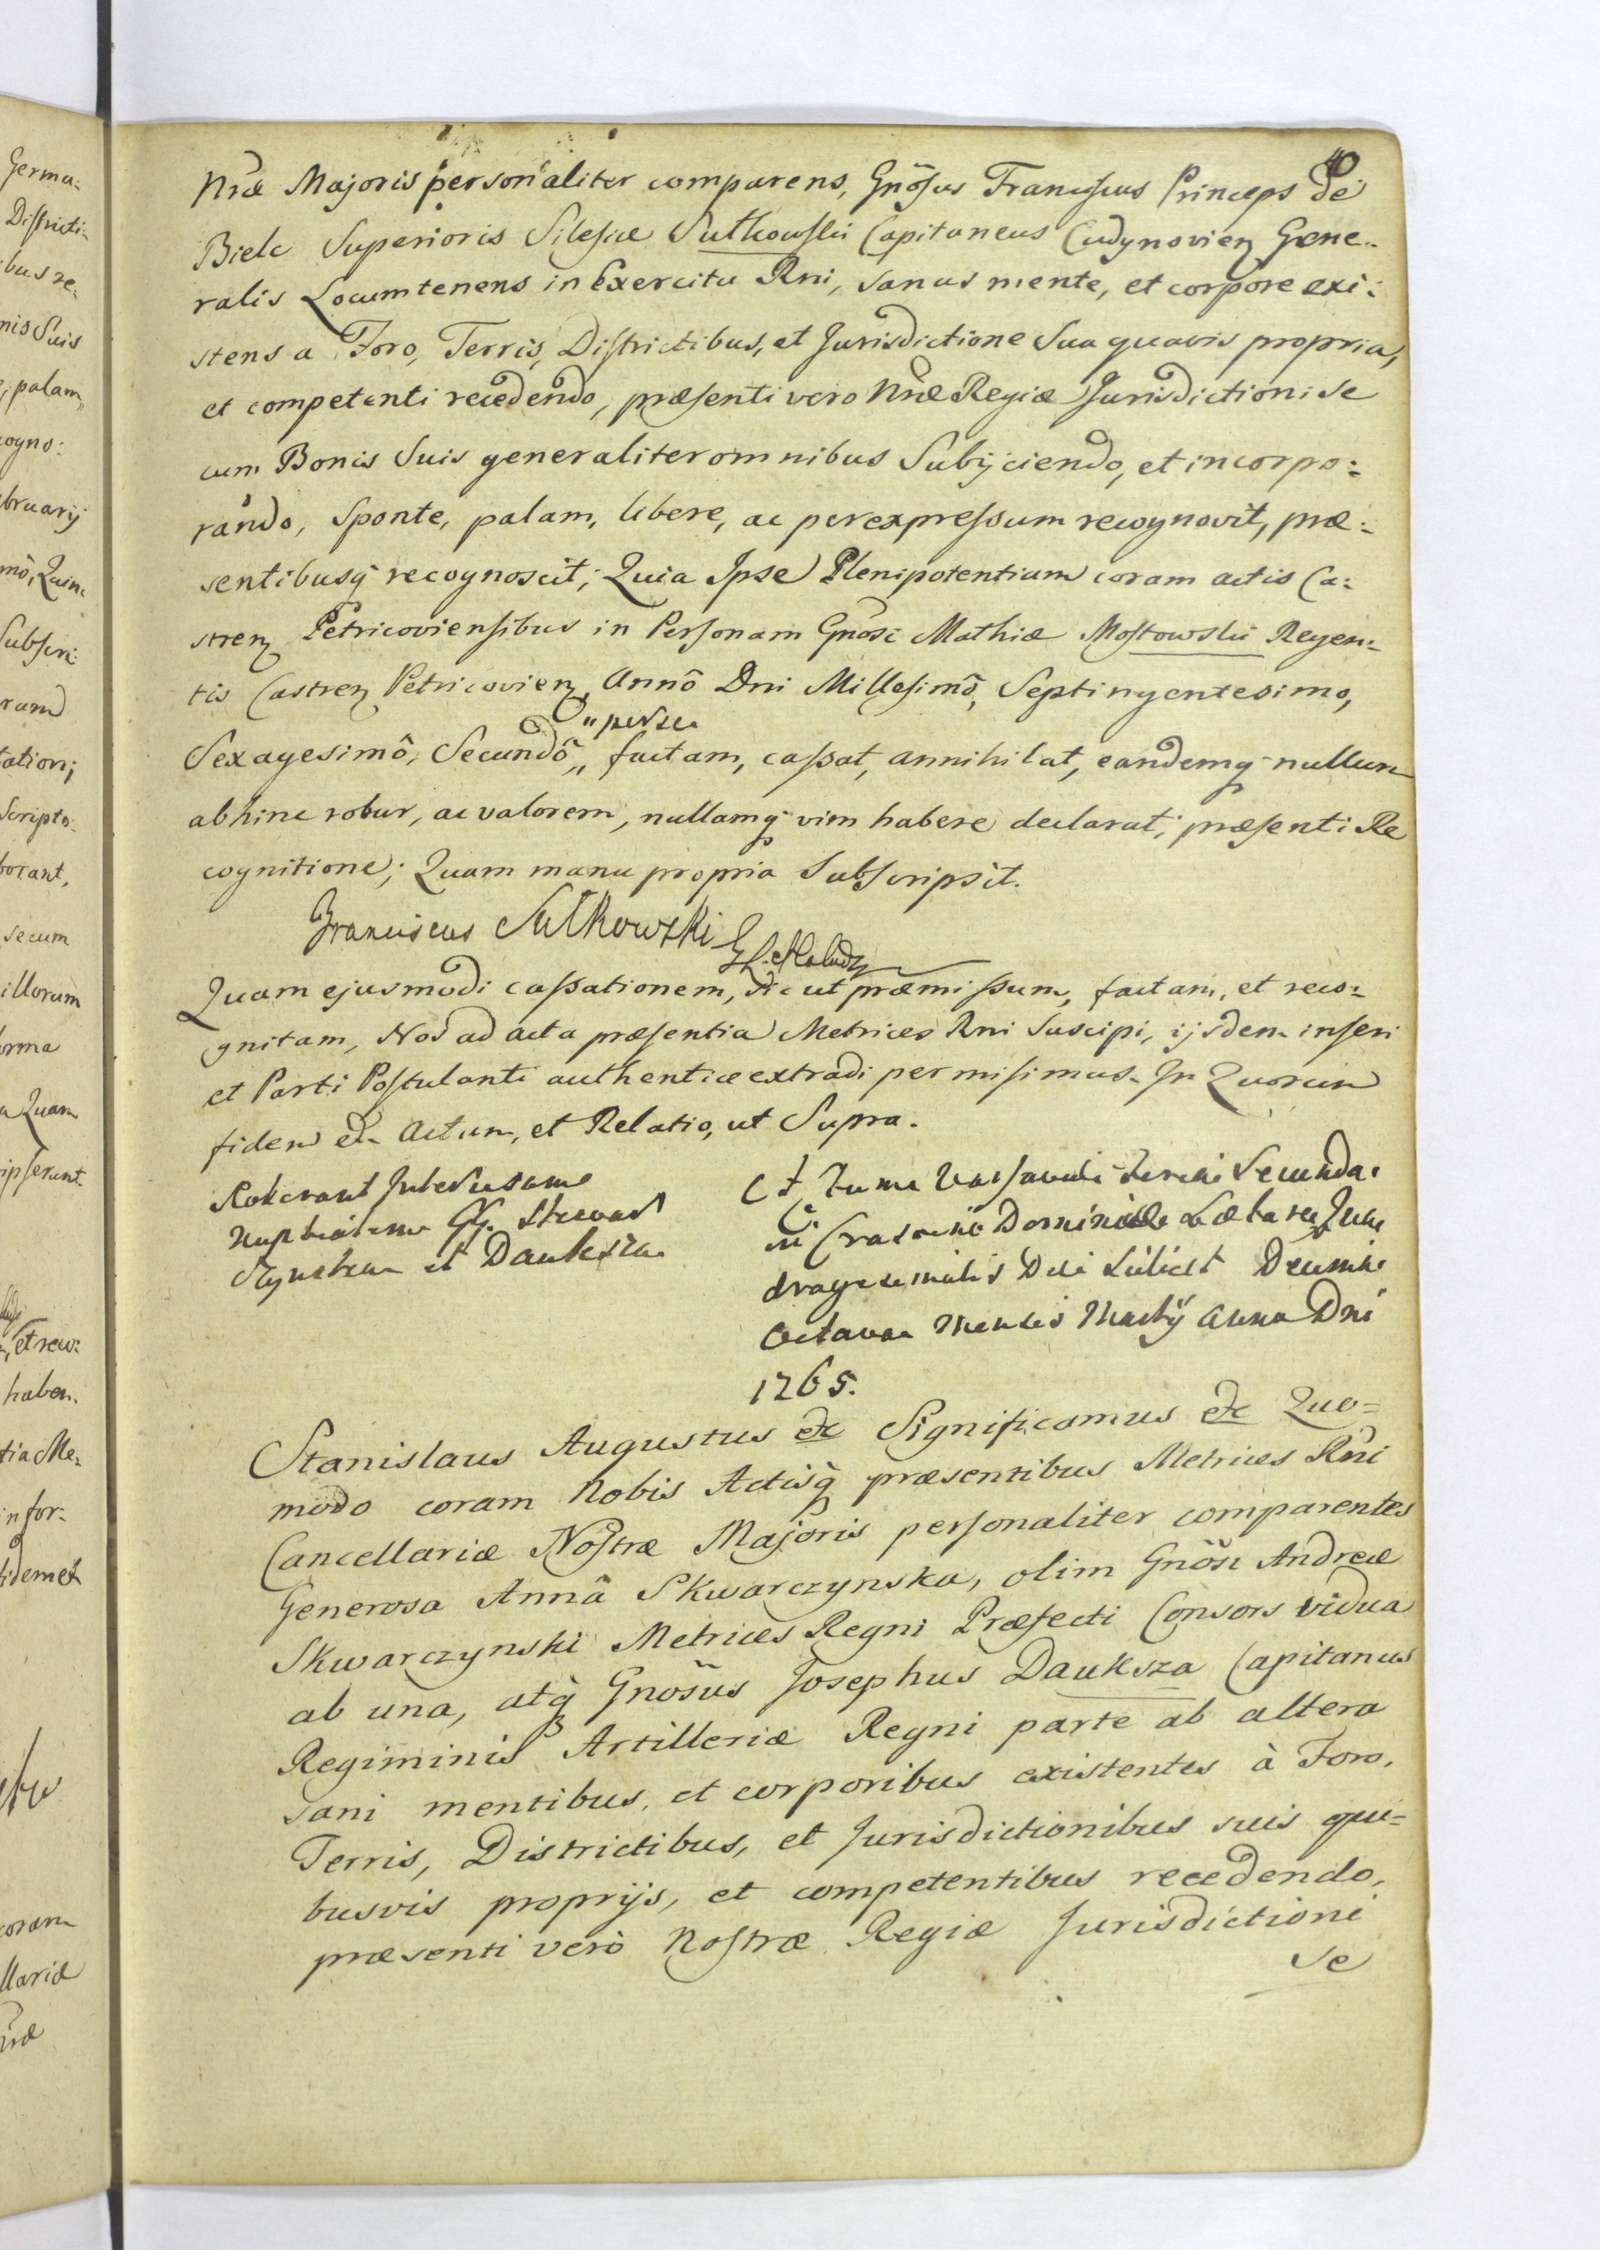 40
Nrae Majoris personaliter comparens, Gnosus Franciscus Princeps de
Biele Superioris Silesiae Sulkowski Capitaneus Gene-
ralis Locumtenens in Exercitu Rni, sanus mente, et corpore exi:
stens a Foro, Terris, Districtibus, et Jurisdictione Sua quavis propria,
et competenti recedendo, praesenti vero Nrae Regiae Jurisdictioni se
cum Bonis Suis generaliter omnibus Subijciendo, et incorpo:
rando, Sponte, palam, libere, ac per expressum recognovit, prae:
sentibusq recognoscit; Quia Ipse Plenipotentiam coram actis Ca:
stren Petricoviensibus in Personam Gnosi Mathiae Mostowski Regen:
tis Castren Petricovien, Annô Dni Millesimô, Septingentesimo,
Sexagesimô, Secundô,, factam, cassat, annihilat, eandemq nullum
"per se
abhinc robur, ac valorem, nullamq vim habere declarat; praesenti Re
cognitione; Quam manu propria Subscripsit.
Franciscus Sulkowski
Quam ejusmodi cassationem, sic ut praemissum, factam, et reco:
gnitam, Nos ad acta praesentia Metrices Rni Suscipi, ijsdem inseri
et Parti Postulanti authentice extradi permisimus. In Quorum
fidem etc Actum, et Relatio, ut Supra.
Roborant
GG.
et Dauksza
Secunda
in Crastino Dominicae Laetare Qua
dragesimalis Die Scilicet Decima
Octava Mensis Martij Anno Dni
1765.
Stanislaus Augustus etc Significamus etc Quo=
modo coram Nobis Actisq praesentibus Metrices Rni
Cancellariae Nostrae Majoris personaliter comparentes
Generosa Anna Skwarczynska, olim Gnosi Andreae
Skwarczynski Metrices Regni Praefecti Consors vidua
ab una, atq Gnosus Josephus Dauksza Capitanus
Regiminis Artilleriae Regni parte ab altera
sani mentibus, et corporibus existentes à Foro,
Terris, Districtibus, et Jurisdictionibus suis qui=
busvis proprijs, et competentibus recedendo,
praesenti verò Nostrae Regiae Jurisdictioni
se